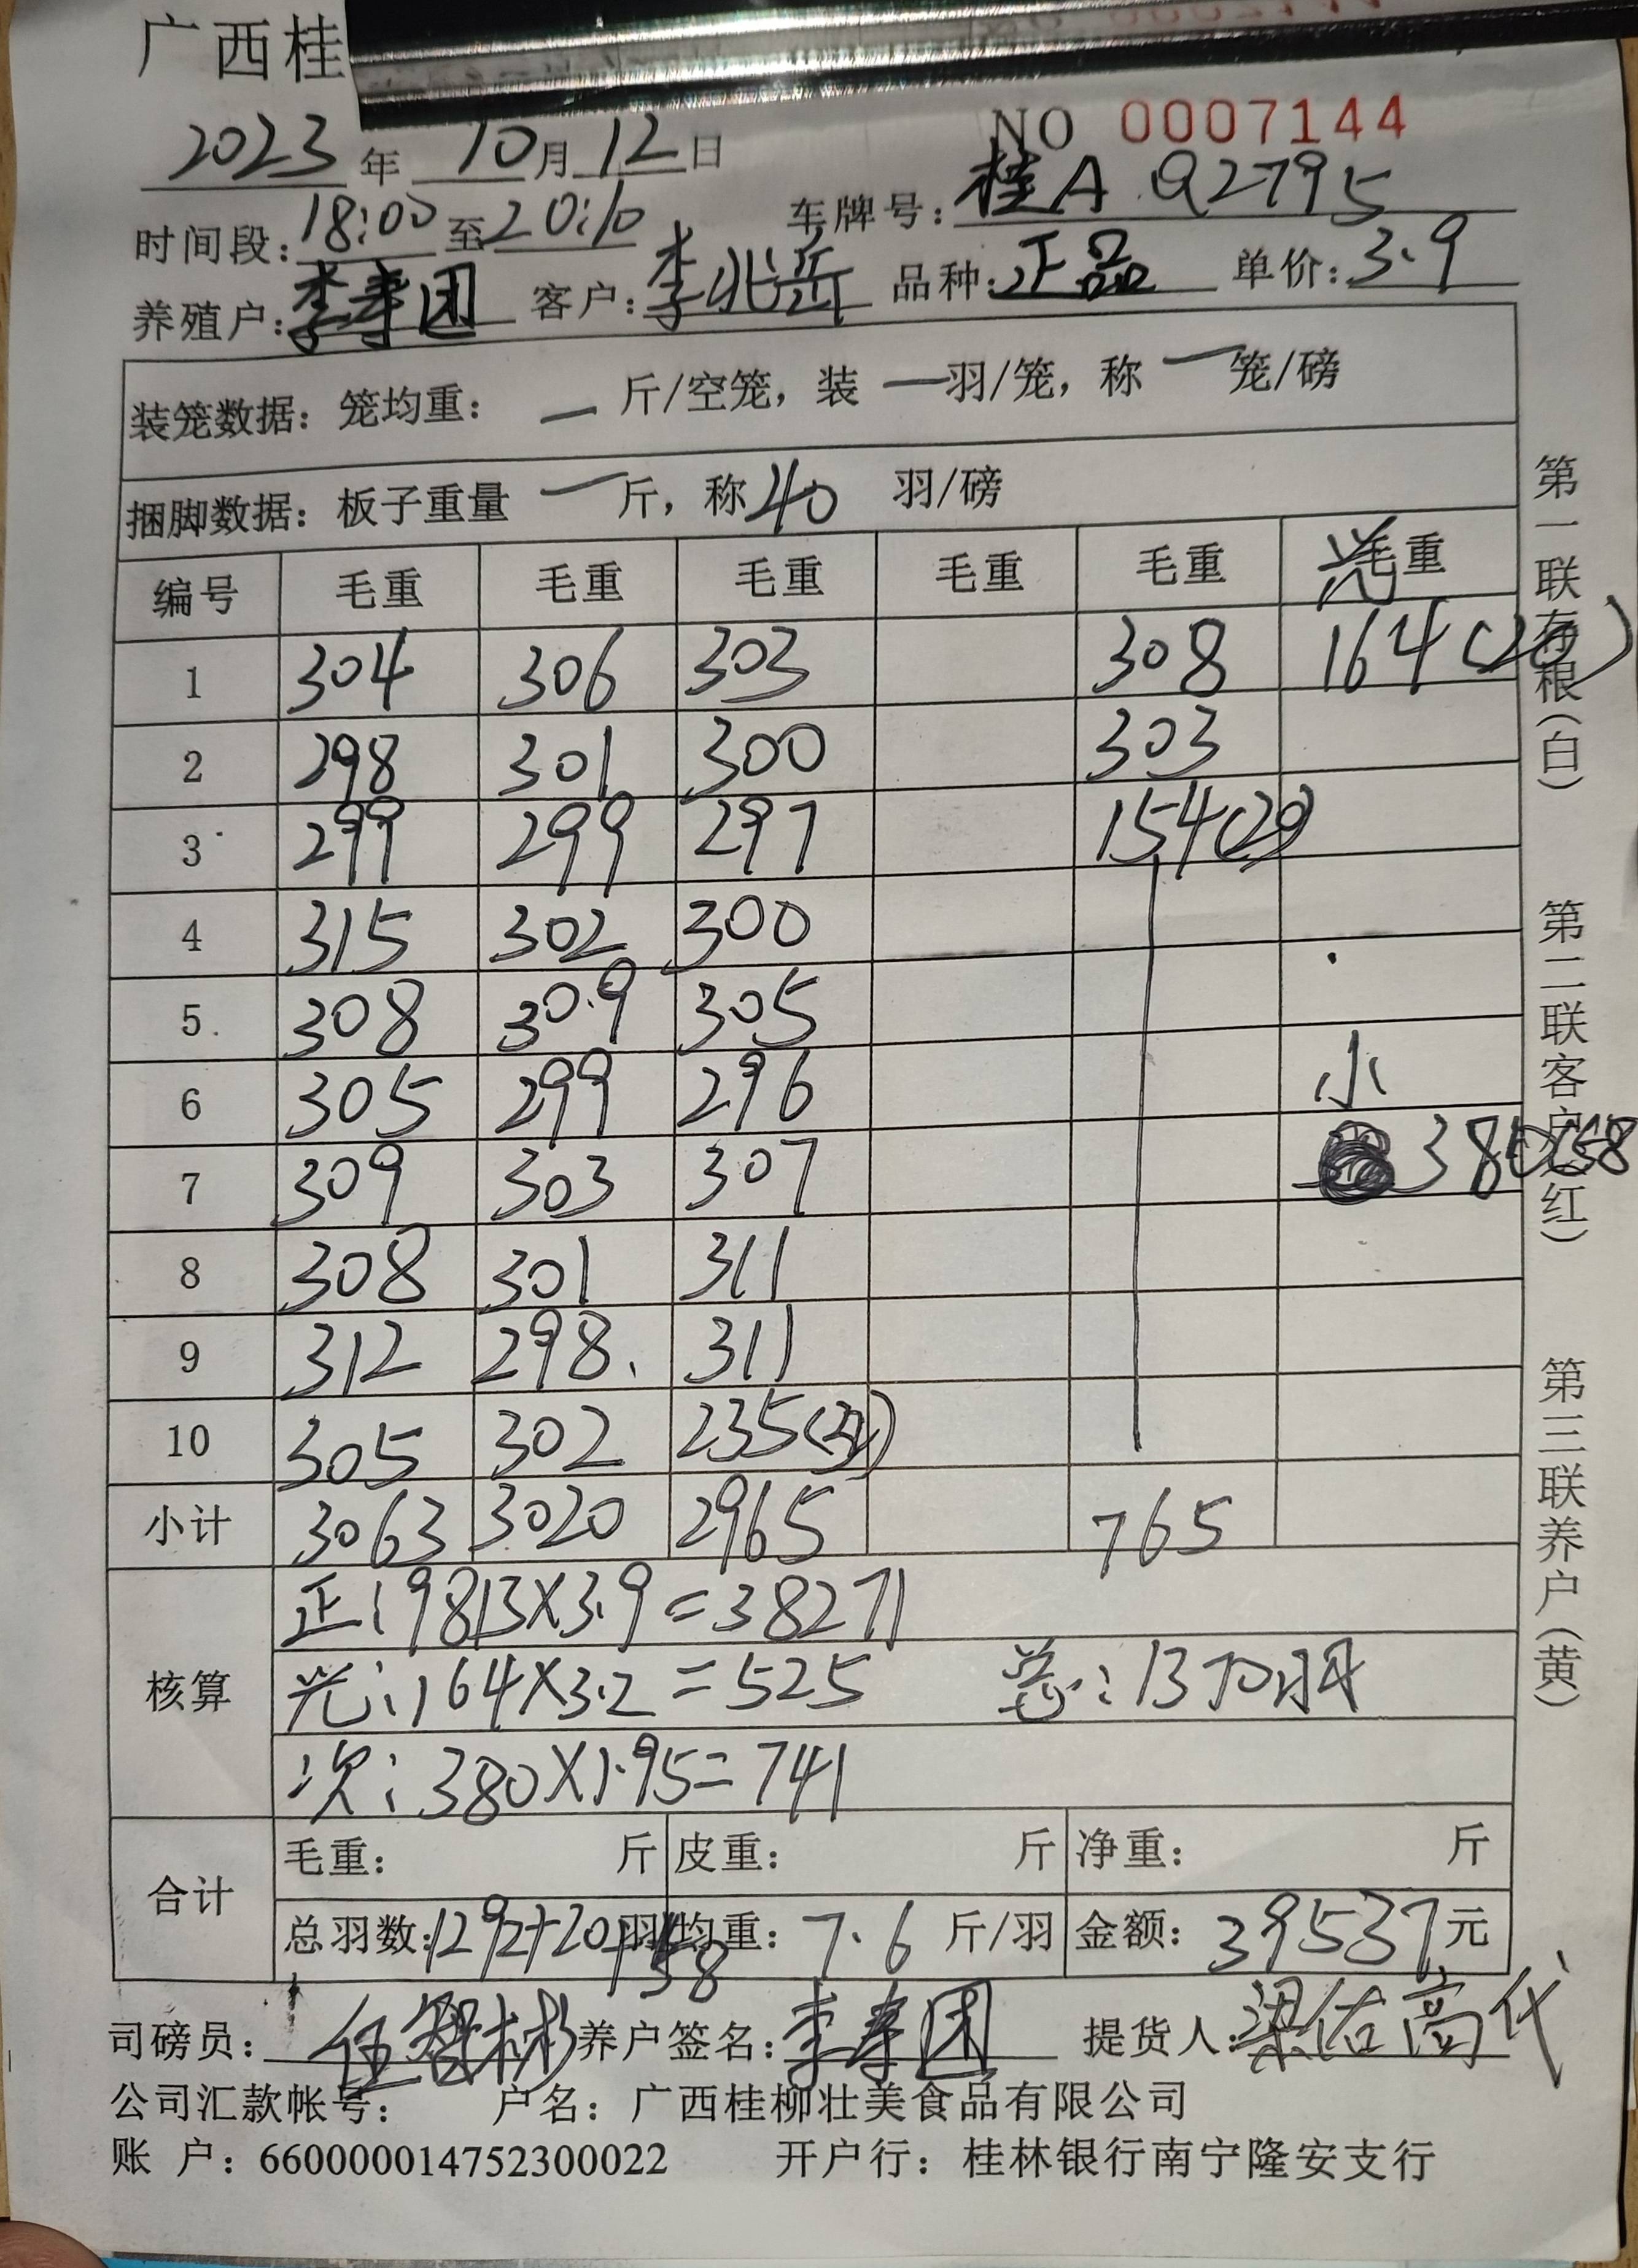 广西桂
NO 0007144
2023年 10月12日
时间段:18:00至20:10 车牌号:桂A Q2795
养殖户:李寿团 客户:李兆岳 品种:正品 单价:3.9
装笼数据: 笼均重: — 斤/空笼, 装 — 羽/笼, 称 — 笼/磅
捆脚数据: 板子重量 — 斤, 称 40 羽/磅
编号 毛重 毛重 毛重 毛重 毛重 光毛重
1 304 306 303 308 164(20)
2 298 301 300 303
3 299 299 297 154(20)
4 315 302 300
5 308 309 305
6 305 299 296 小
7 309 303 307 380(58
8 308 301 311
9 312 298 311
10 305 302 235(32)
小计 3063 3020 2965 765
核算 正:9813×3.9=38271
光:164×3.2=525 总:1370羽
次:380×1.95=741
合计 毛重: 斤 皮重: 斤 净重: 斤
总羽数:1292+20+58羽 均重:7.6斤/羽 金额:39537元
司磅员:伍智彬 养户签名:李寿团 提货人:梁佑高代
公司汇款帐号: 户名:广西桂柳壮美食品有限公司
账 户:660000014752300022 开户行:桂林银行南宁隆安支行
第一联存根(白)
第二联客户(红)
第三联养户(黄)